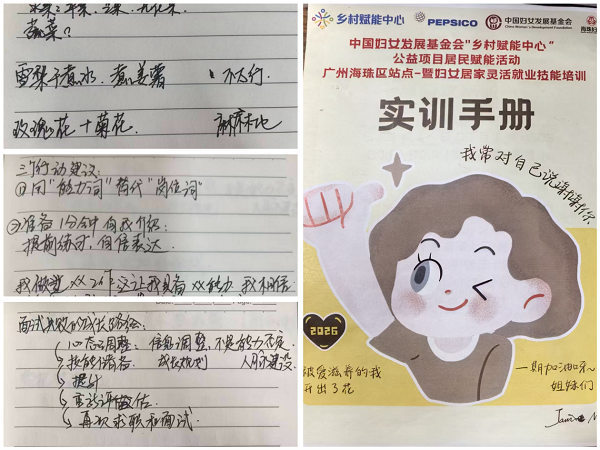 蔬菜？
雪梨干煮水，煮姜薯 不太行.
玫瑰花+菊花.
三、行动建议：
①用"能力词"替代"岗位词"
②准备1分钟自我介绍：
提前练习，自信表达.
我做过xx工作，这让我具备xx能力，我相信
面试失败的成长路径：
心态调整：信息调整，不是能力不足.
技能储备. 成长规划 人脉建设.
提升
重新评估.
再次求职和面试.
乡村赋能中心 PEPSICO 中国妇女发展基金会
China Women's Development Foundation
中国妇女发展基金会"乡村赋能中心"
公益项目居民赋能活动
广州海珠区站点-暨妇女居家灵活就业技能培训
实训手册
我常对自己说谢谢你.
2026
被爱滋养的我
开出了花
一期加油呀~
姐妹们